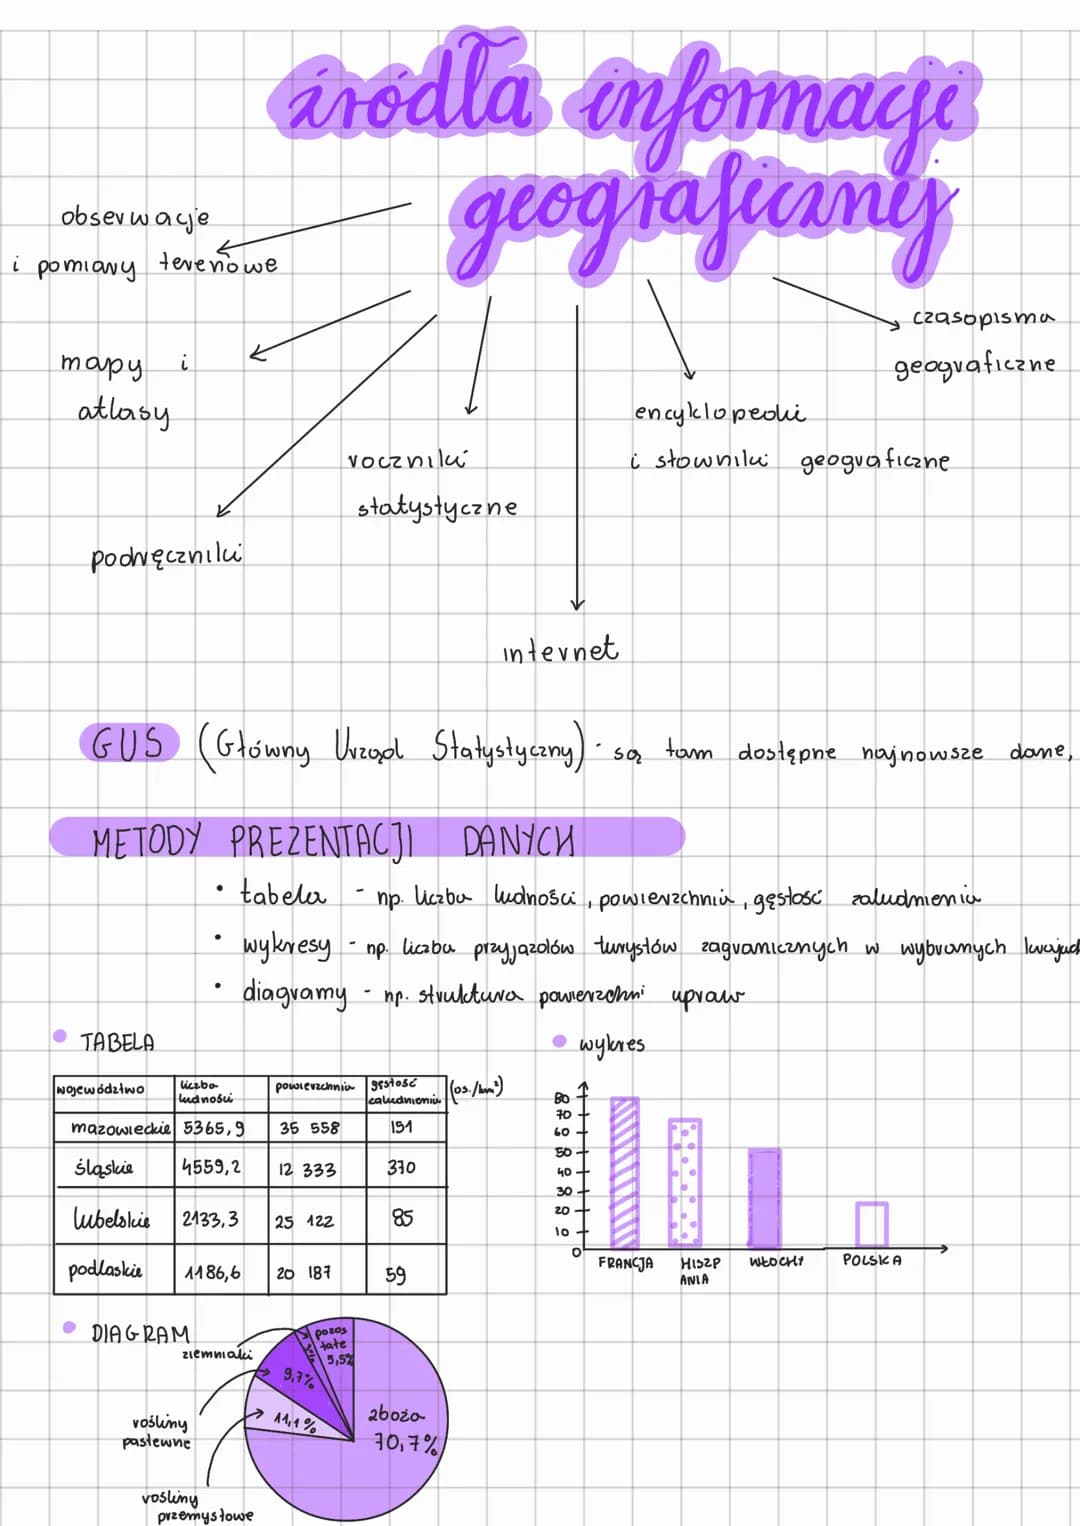 źródła informacji
geograficznej
obserwacje
i pomiary terenowe
mapy i
atlasy
podręczniki
roczniki
statystyczne
internet
encyklopedie
i słowniki geograficzne
czasopisma
geograficzne
GUS (Główny Urząd Statystyczny) · są tam dostępne najnowsze dane,
METODY PREZENTACJI DANYCH
• tabela - np. liczba ludności, powierzchnia, gęstość zaludnienia
• wykresy - np. liczba przyjazdów turystów zagranicznych w wybranych krajach
• diagramy - np. struktura powierzchni upraw
• TABELA
województwo liczba ludności powierzchnia gęstość zaludnienia (os./km²)
mazowieckie 5365,9 35 558 151
śląskie 4559,2 12 333 370
lubelskie 2133,3 25 122 85
podlaskie 1186,6 20 187 59
• wykres
80
70
60
50
40
30
20
10
0
FRANCJA HISZPANIA WŁOCHY POLSKA
• DIAGRAM
ziemniaki
pozostałe
5,5%
9,7%
11,1%
zboża
70,7%
rośliny
pastewne
rośliny
przemysłowe